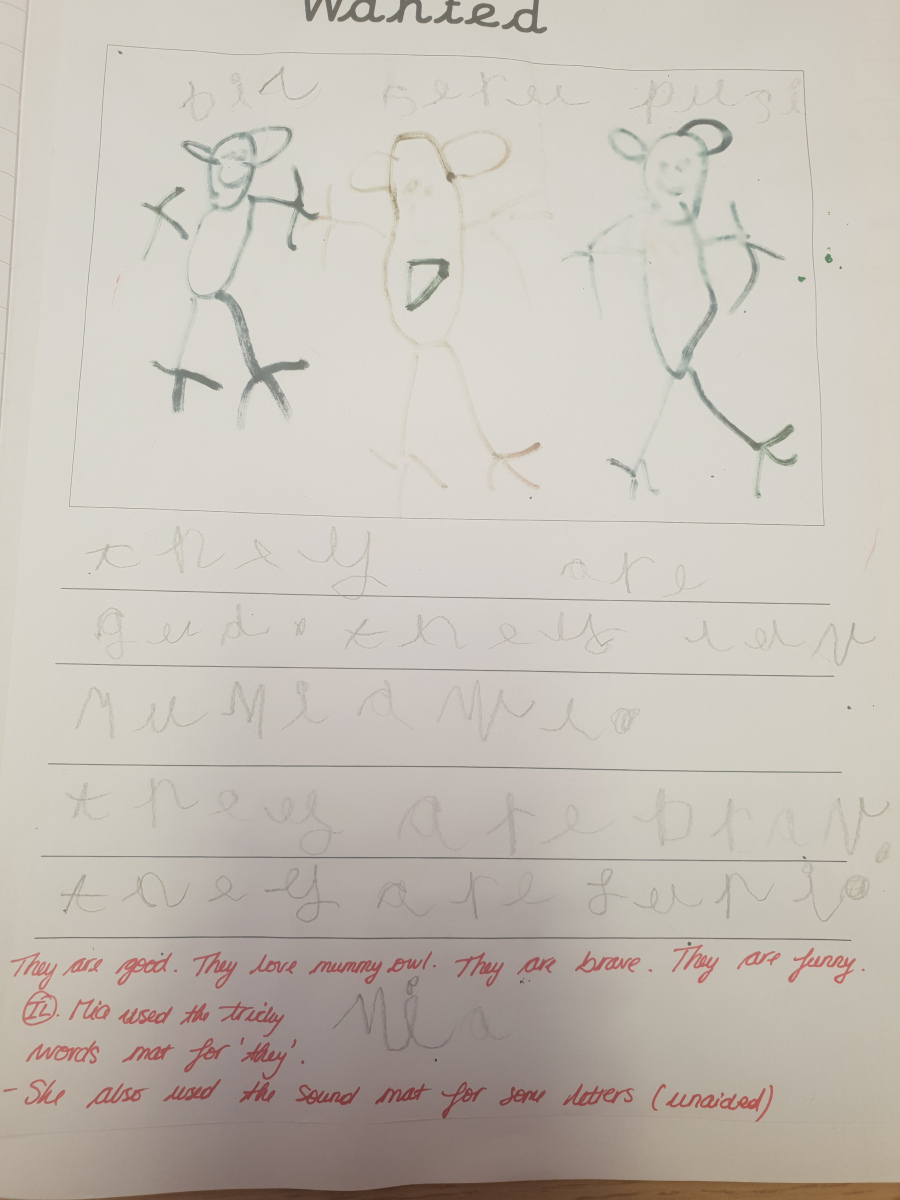 Wanted
they are
gud. they luv
mumi
they are brav.
they are funi.
They are good. They love mummy owl. They are brave. They are funny.
IL. Mia used the tricky
Mia
words mat for 'they'.
- She also used the sound mat for some letters (unaided)